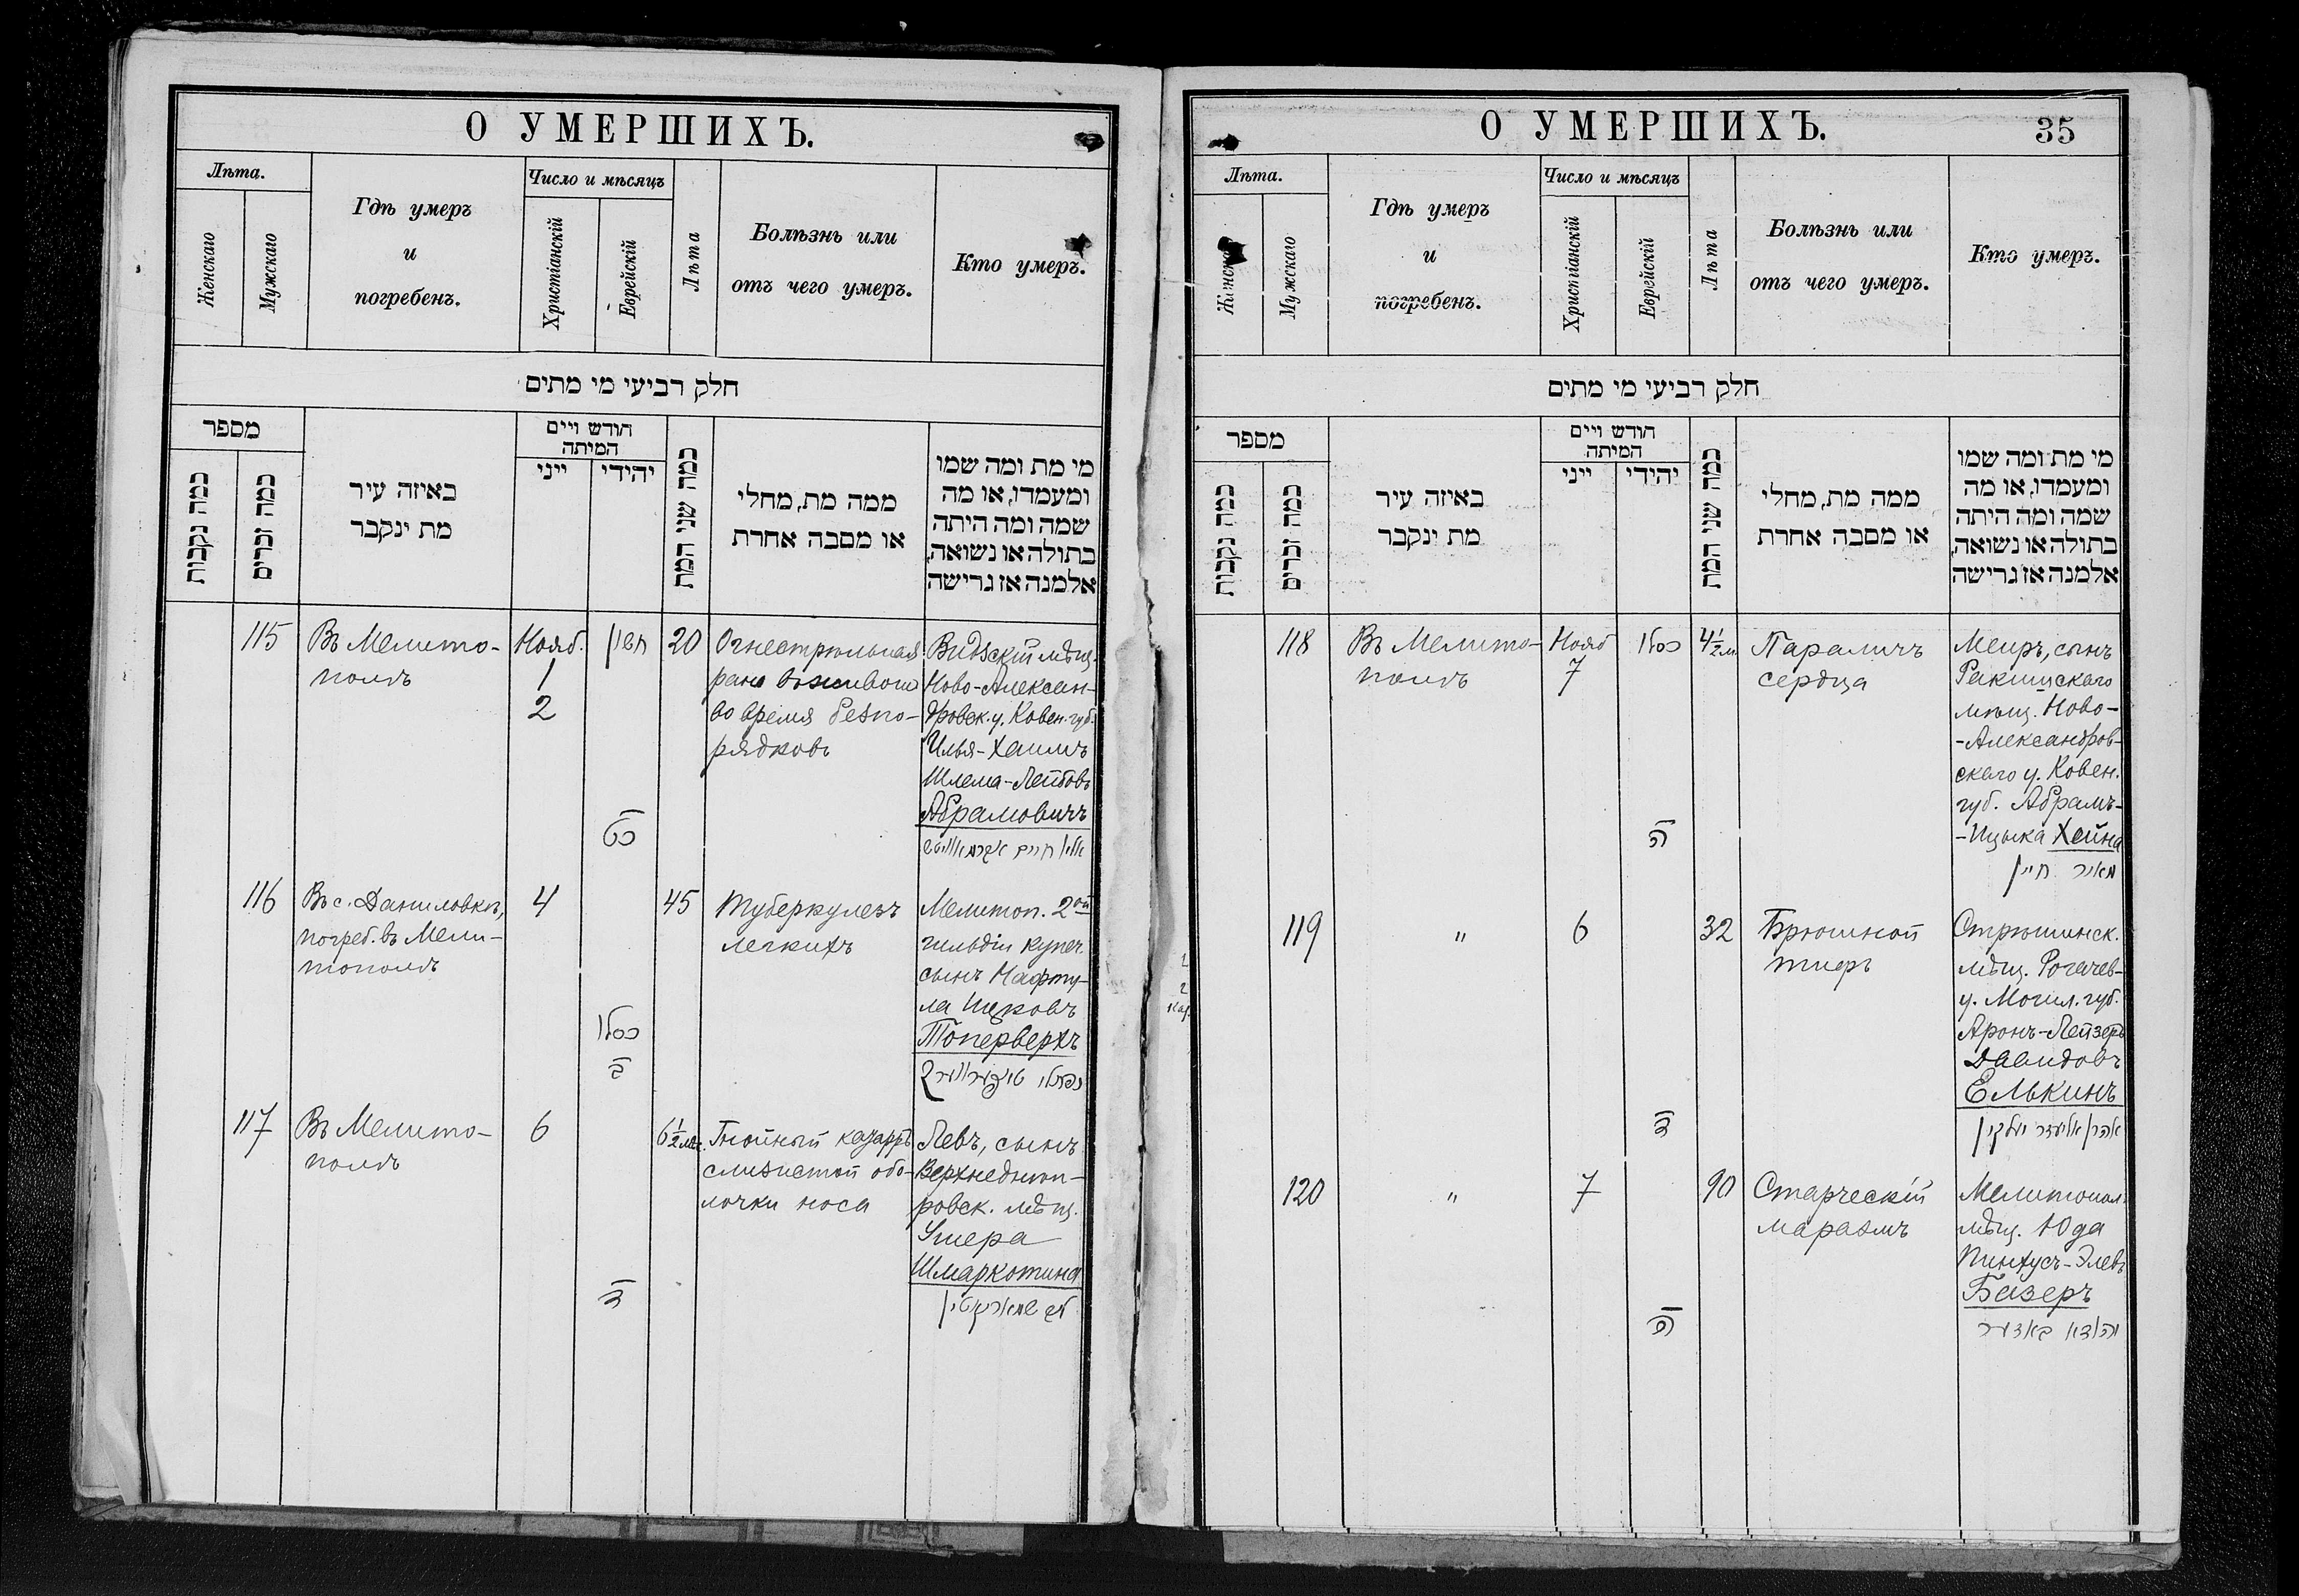 О УМЕРШИХЪ.
Лѣта.
Женскаго
Мужскаго
Гдѣ умеръ
и
погребенъ.
Число и мѣсяцъ
Христіанскій
Еврейскій
Лѣта
Болѣзнь или
отъ чего умеръ.
Кто умеръ.
חלק רביעי מי מתים
מספר
כמה נקבות
כמה זכרים
באיזה עיר
מת ינקבר
חודש ויים
המיתה
ייני
יהידי
כמה שני המת
ממה מת, מחלי
או מסבה אחרת
מי מת ומה שמו
ומעמדו, או מה
שמה ומה היתה
בתולה או נשואה,
אלמנה אז גרישה
115
Въ Мелито-
полѣ
Нояб.
1
2
חשון
כט
20
Огнестрѣльная
рана въ животъ
во время безпо-
рядковъ
Видзскій мѣщ.
Ново-Алексан-
дровск. у. Ковен. губ.
Илья-Хаимъ
Шлема-Лейбовъ
Абрамовичъ
אלי' חיים אבראמאוויטש
116
Въ с. Даниловкѣ,
погреб. въ Мели-
тополѣ
4
כסלו
ב
45
Туберкулезъ
легкихъ
Мелитоп. 2ой
гильдіи купеч.
сынъ Нафту-
ла Ицковъ
Топерверхъ
נפתלי
117
Въ Мелито-
полѣ
6
ד
6½ мѣс.
Гнойный катарръ
слизистой обо-
лочки носа
Левъ, сынъ
Верхнеднѣп-
ровск. мѣщ.
Ушера
Шмаркотина
לב שמארקאטין
О УМЕРШИХЪ.
35
Лѣта.
Женскаго
Мужскаго
Гдѣ умеръ
и
погребенъ.
Число и мѣсяцъ
Христіанскій
Еврейскій
Лѣта
Болѣзнь или
отъ чего умеръ.
Кто умеръ.
חלק רביעי מי מתים
מספר
כמה נקבות
כמה זכרים
באיזה עיר
מת ינקבר
חודש ויים
המיתה
ייני
יהידי
כמה שני המת
ממה מת, מחלי
או מסבה אחרת
מי מת ומה שמו
ומעמדו, או מה
שמה ומה היתה
בתולה או נשואה,
אלמנה אז גרישה
118
Въ Мелито-
полѣ
Нояб
7
כסלו
ה
4½ м
Параличъ
сердца
Меиръ, сынъ
Ракишскаго
мѣщ. Ново-
-Александров-
скаго у. Ковен.
губ. Абрамъ-
-Ицыка Хейна
מאיר חיין
119
"
6
ד
32
Брюшной
тифъ
Стрѣшинск.
мѣщ. Рогачев-
у. Могил. губ.
Аронъ-Лейзеръ
Давидовъ
Елькинъ
אהרן אליעזר יעלקין
120
"
7
ה
90
Старческій
маразмъ
Мелитопол.
мѣщ. Юда
Пинхусъ-Элевъ
Базеръ
יהודא באזער